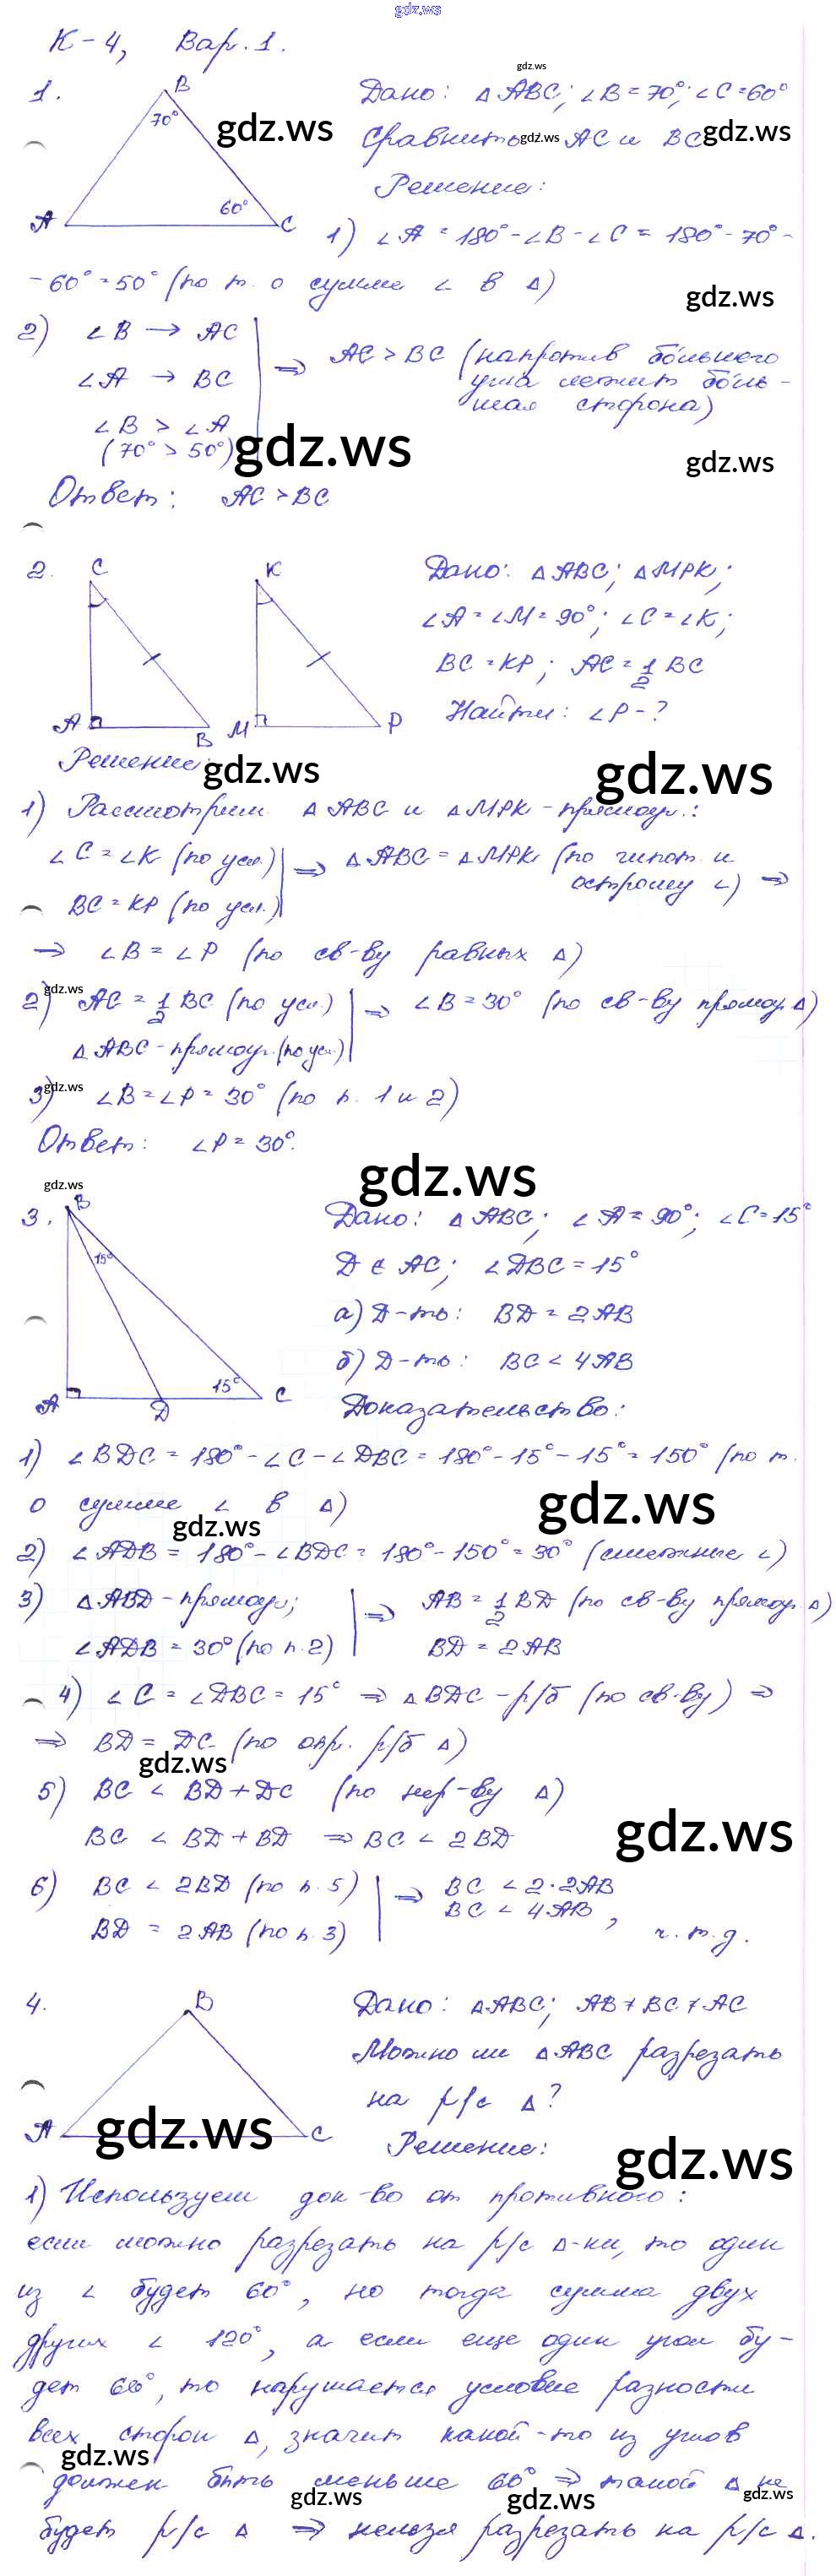 gdz.ws
К-4, Вар. 1.
gdz.ws
1.
B
70°
60°
A
C
Дано: △ABC; ∠B = 70°; ∠C = 60°
gdz.ws
Сравнить: gdz.ws AC и BC gdz.ws
Решение:
1) ∠A = 180° - ∠B - ∠C = 180° - 70° -
- 60° = 50° (по т. о сумме ∠ в △)
gdz.ws
2) ∠B → AC
∠A → BC
∠B > ∠A
(70° > 50°)
⇒ AC > BC (напротив большего
угла лежит боль-
шая сторона)
gdz.ws
gdz.ws
Ответ: AC > BC
2.
C
A
B
K
M
P
Дано: △ABC; △MPK;
∠A = ∠M = 90°; ∠C = ∠K;
BC = KP; AC = 1/2 BC
Найти: ∠P - ?
Решение:
gdz.ws
gdz.ws
1) Рассмотрим △ABC и △MPK - прямоуг.:
∠C = ∠K (по усл.)
BC = KP (по усл.)
⇒ △ABC = △MPK (по гипот. и
острому ∠) ⇒
⇒ ∠B = ∠P (по св-ву равных △)
gdz.ws
2) AC = 1/2 BC (по усл.)
△ABC - прямоуг. (по усл.)
⇒ ∠B = 30° (по св-ву прямоуг. △)
gdz.ws
3) ∠B = ∠P = 30° (по п. 1 и 2)
Ответ: ∠P = 30°.
gdz.ws
gdz.ws
3.
B
15°
15°
A
D
C
Дано: △ABC; ∠A = 90°; ∠C = 15°
D ∈ AC; ∠DBC = 15°
а) Д-ть: BD = 2AB
б) Д-ть: BC < 4AB
Доказательство:
1) ∠BDC = 180° - ∠C - ∠DBC = 180° - 15° - 15° = 150° (по т.
о сумме ∠ в △)
gdz.ws
gdz.ws
2) ∠ADB = 180° - ∠BDC = 180° - 150° = 30° (смежные ∠)
3) △ABD - прямоуг.;
∠ADB = 30° (по п. 2)
⇒ AB = 1/2 BD (по св-ву прямоуг. △)
BD = 2AB
4) ∠C = ∠DBC = 15° ⇒ △BDC - р/б (по св-ву) ⇒
⇒ BD = DC (по опр. р/б △)
gdz.ws
5) BC < BD + DC (по нер-ву △)
BC < BD + BD ⇒ BC < 2BD
gdz.ws
6) BC < 2BD (по п. 5)
BD = 2AB (по п. 3)
⇒ BC < 2·2AB
BC < 4AB,
ч.т.д.
4.
B
A
C
gdz.ws
Дано: △ABC; AB ≠ BC ≠ AC
Можно ли △ABC разрезать
на р/с △?
Решение:
gdz.ws
1) Используем док-во от противного:
если можно разрезать на р/с △-ки, то один
из ∠ будет 60°, но тогда сумма двух
других ∠ 120°, а если еще один угол бу-
дет 60°, то нарушается условие разности
всех сторон △, значит какой-то из углов
gdz.ws
должен быть меньше 60° ⇒ такой △ не
gdz.ws
gdz.ws
gdz.ws
будет р/с △ ⇒ нельзя разрезать на р/с △.